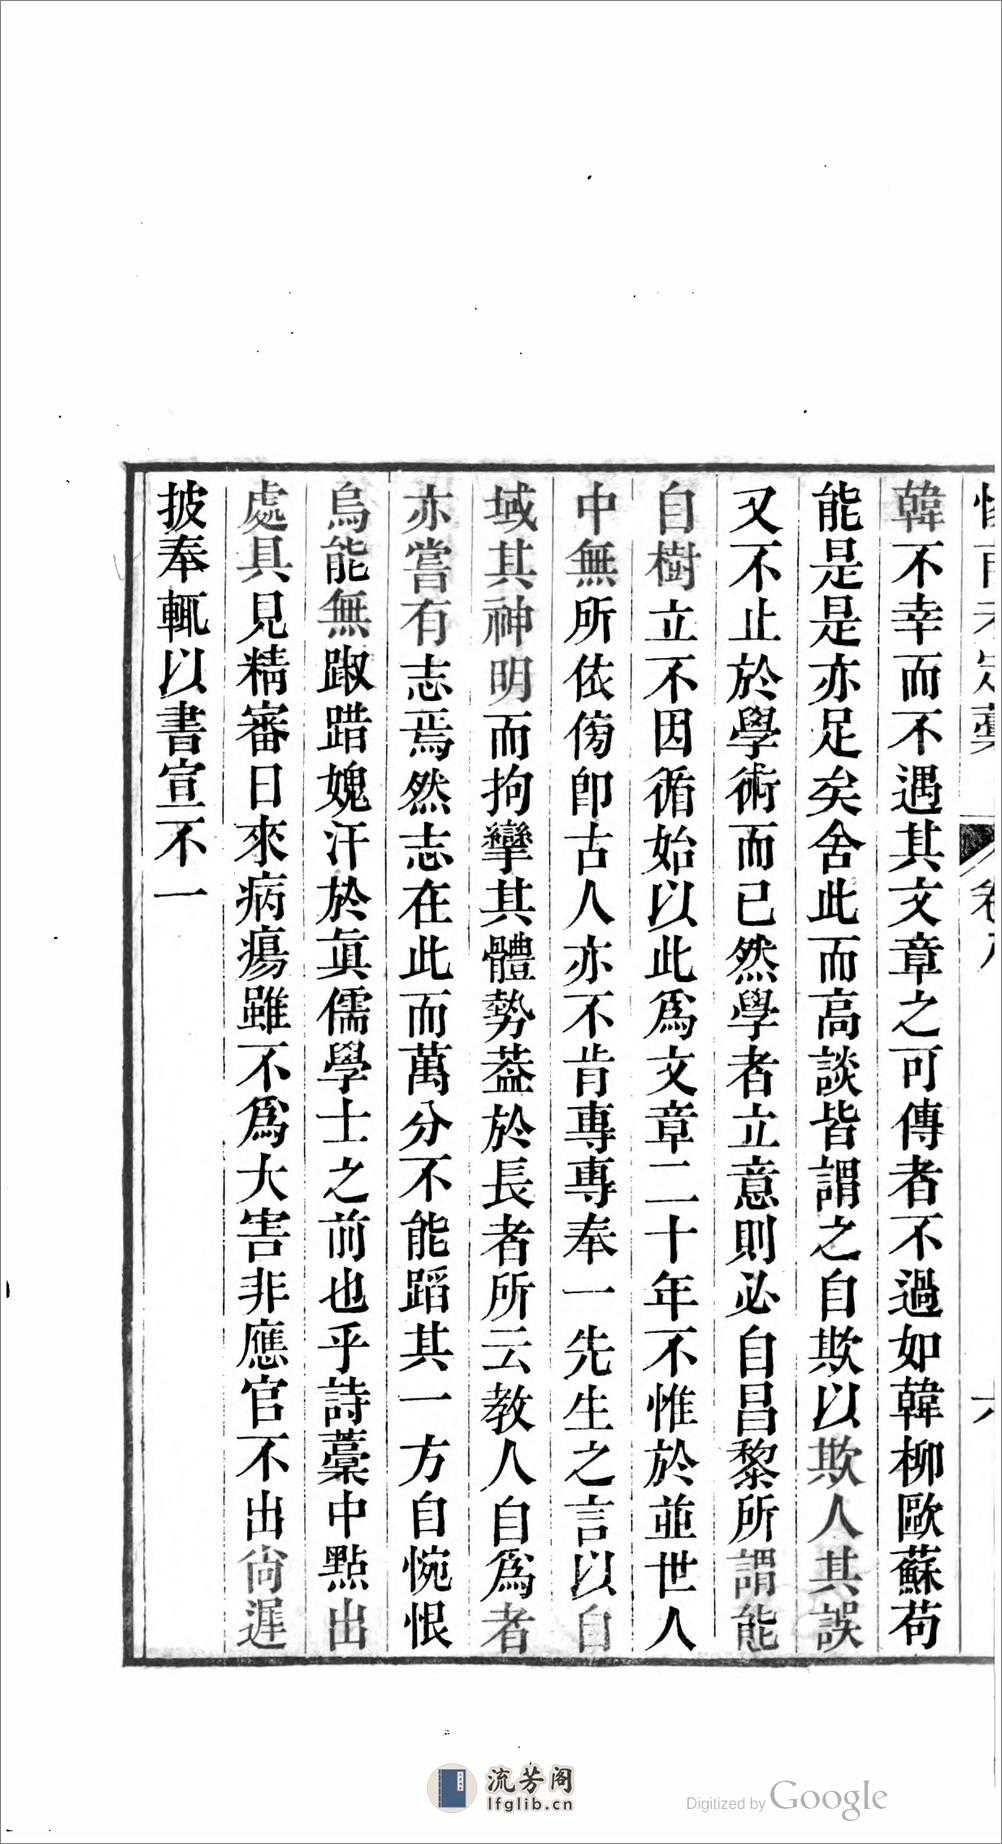 韓不幸而不遇其文章之可傳者不過如韓柳歐蘇苟
能是是亦足矣舍此而高談皆謂之自欺以欺人其誤
又不止於學術而已然學者立意則必自昌黎所謂能
自樹立不因循始以此爲文章二十年不惟於並世人
中無所依傍卽古人亦不肯專專奉一先生之言以自
域其神明而拘攣其體勢葢於長者所云教人自爲者
亦嘗有志焉然志在此而萬分不能蹈其一方自惋恨
烏能無踧踖媿汗於眞儒學士之前也乎詩藁中點出
處具見精審日來病瘍雖不爲大害非應官不出尙遲
披奉輒以書宣不一
流芳阁
lfglib.cn
Digitized by Google